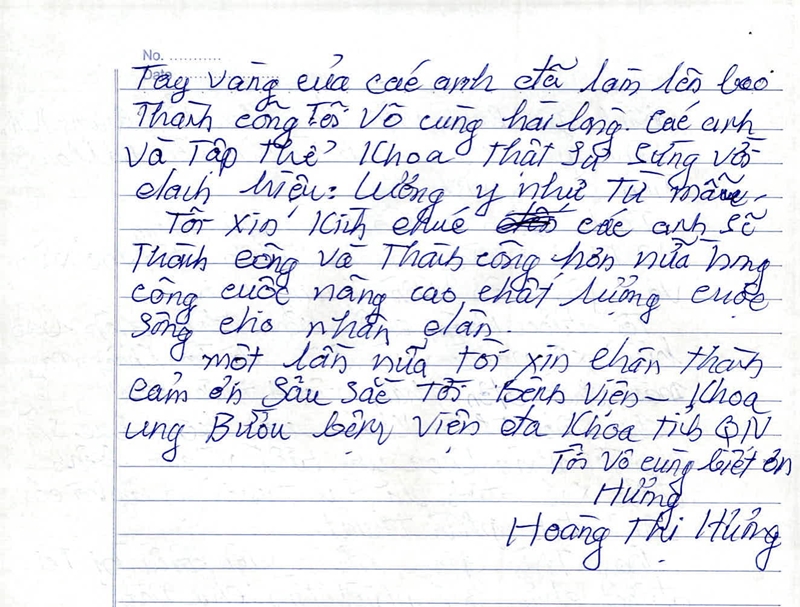 No. ............
Date ....................
Tay vàng của các anh đã làm lên bao
Thành công Tôi vô cùng hài lòng. Các anh
và Tập Thể Khoa thật sự sứng với
danh hiệu: Lương y như Từ mẫu.
Tôi xin kính chúc các anh sẽ
Thành công và Thành công hơn nữa trong
công cuộc nâng cao chất lượng cuộc
sống cho nhân dân.
một lần nữa tôi xin chân thành
cảm ơn sâu sắc tới Bệnh viện - Khoa
ung Bướu bệnh viện đa khoa tỉnh QN
Tôi vô cùng biết ơn
Hưởng
Hoàng Thị Hưởng